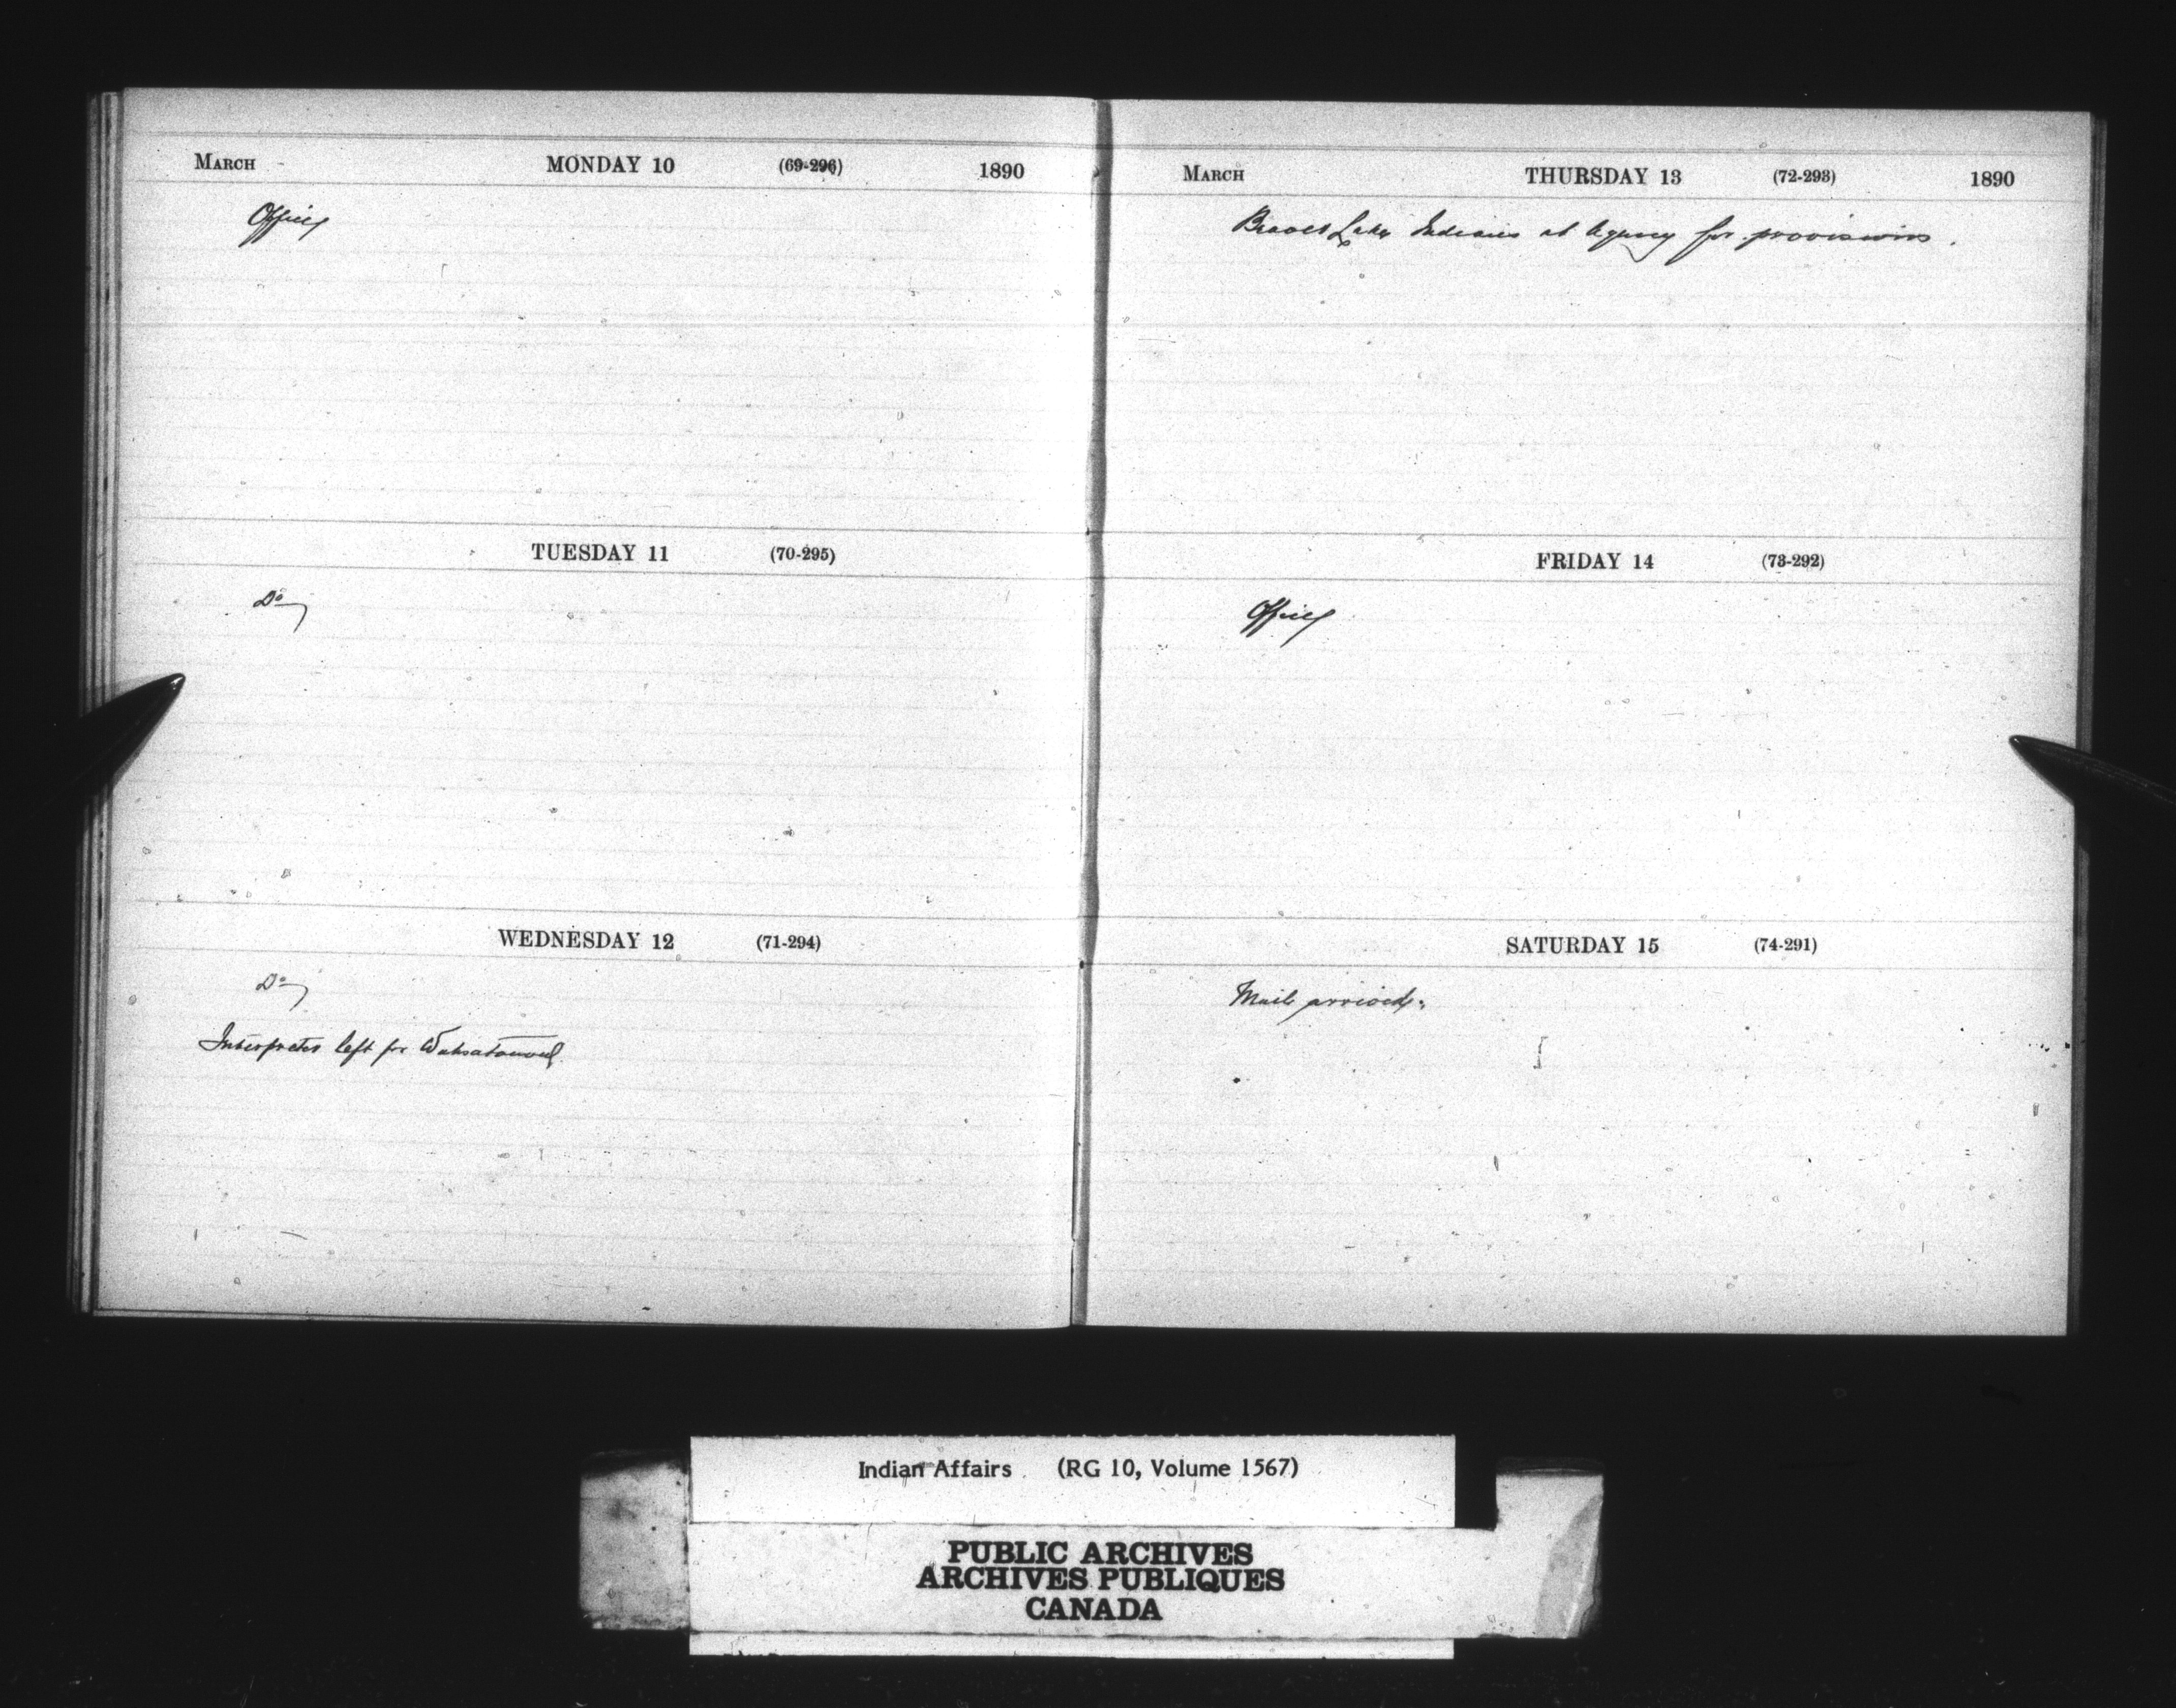 MARCH MONDAY 10 (69-296) 1890
Office
TUESDAY 11 (70-295)
Do
WEDNESDAY 12 (71-294)
Do
Interpreter left for
MARCH THURSDAY 13 (72-293) 1890
Beaver Lake Indians at Agency for provisions.
FRIDAY 14 (73-292)
Office
SATURDAY 15 (74-291)
Mail arrived.
Indian Affairs (RG 10, Volume 1567)
PUBLIC ARCHIVES
ARCHIVES PUBLIQUES
CANADA